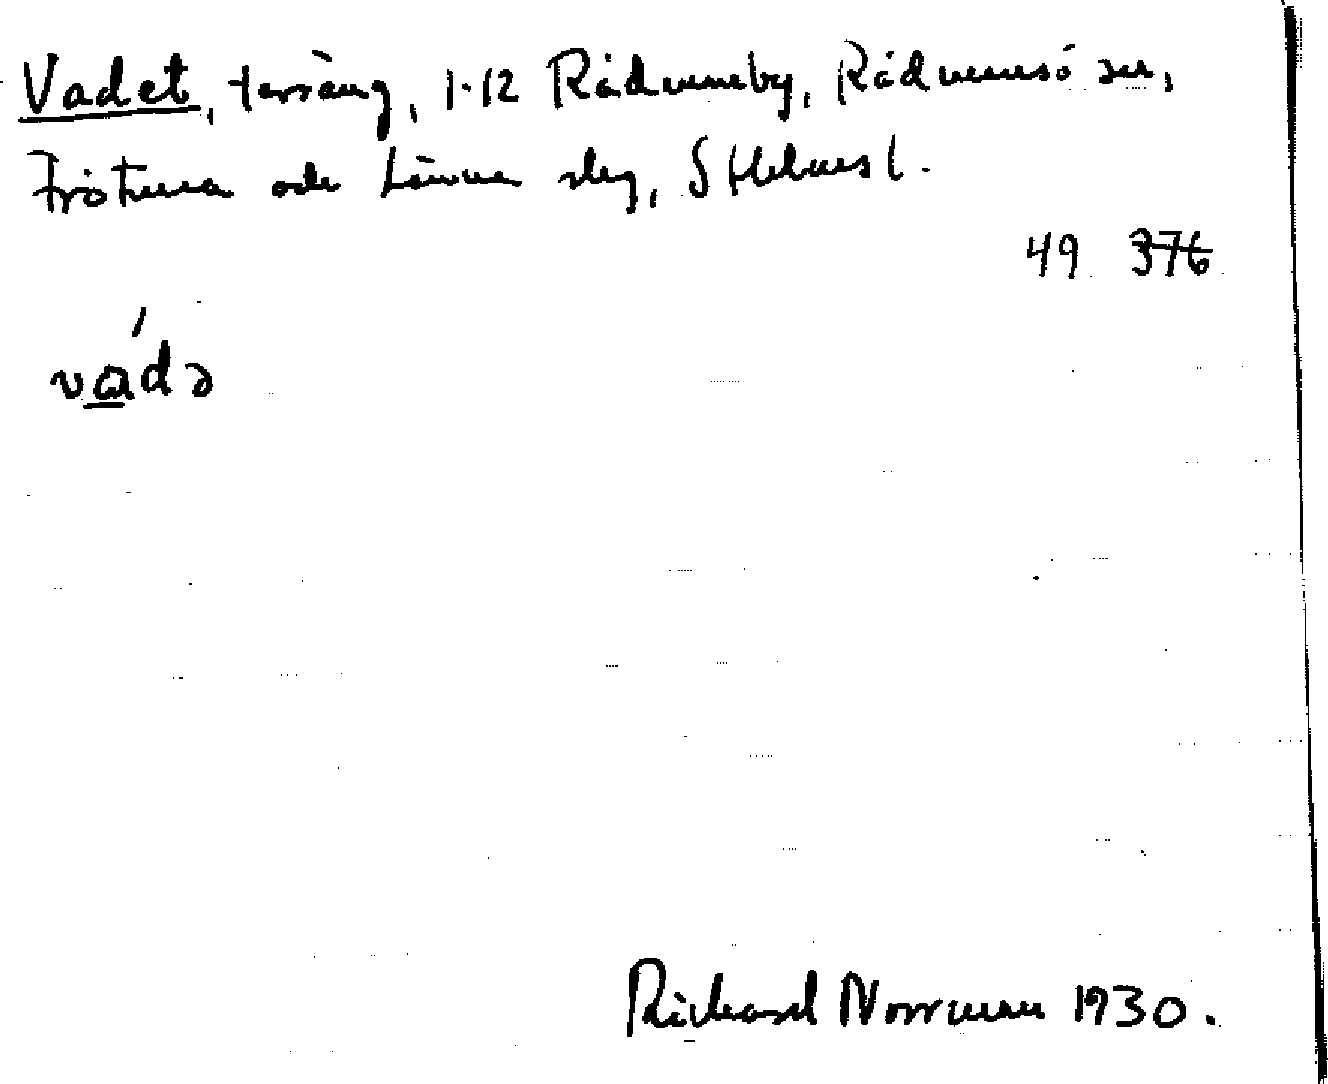 Vadet, terräng, 1-12 Rådmanby, Rådmansö sn,
Frötuna och Länna slg, Sthlms l.
49 376
vádə
Rickard Norrman 1930.